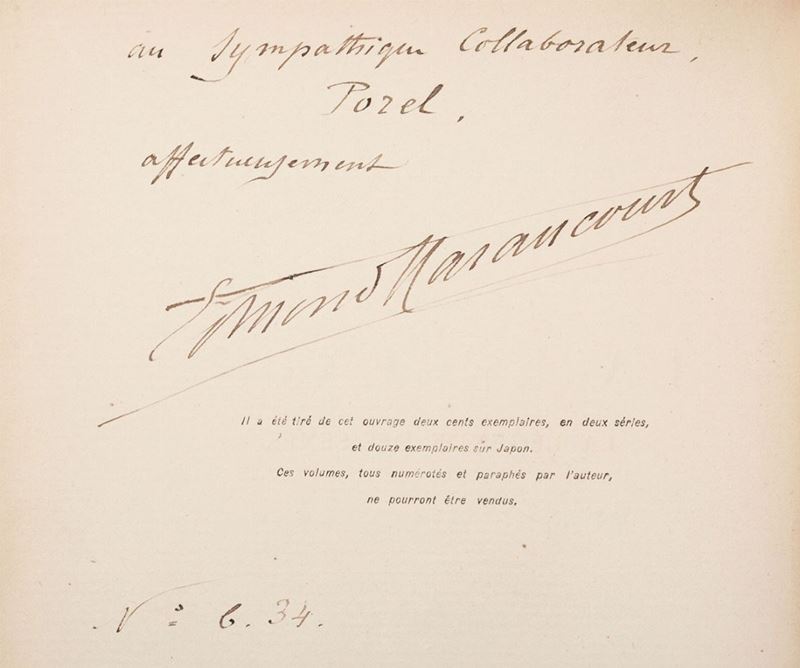 au Sympathique Collaborateur,
Porel,
affectueusement
Edmond Haraucourt
Il a été tiré de cet ouvrage deux cents exemplaires, en deux séries,
et douze exemplaires sur Japon.
Ces volumes, tous numérotés et paraphés par l'auteur,
ne pourront être vendus.
N° 6. 34.